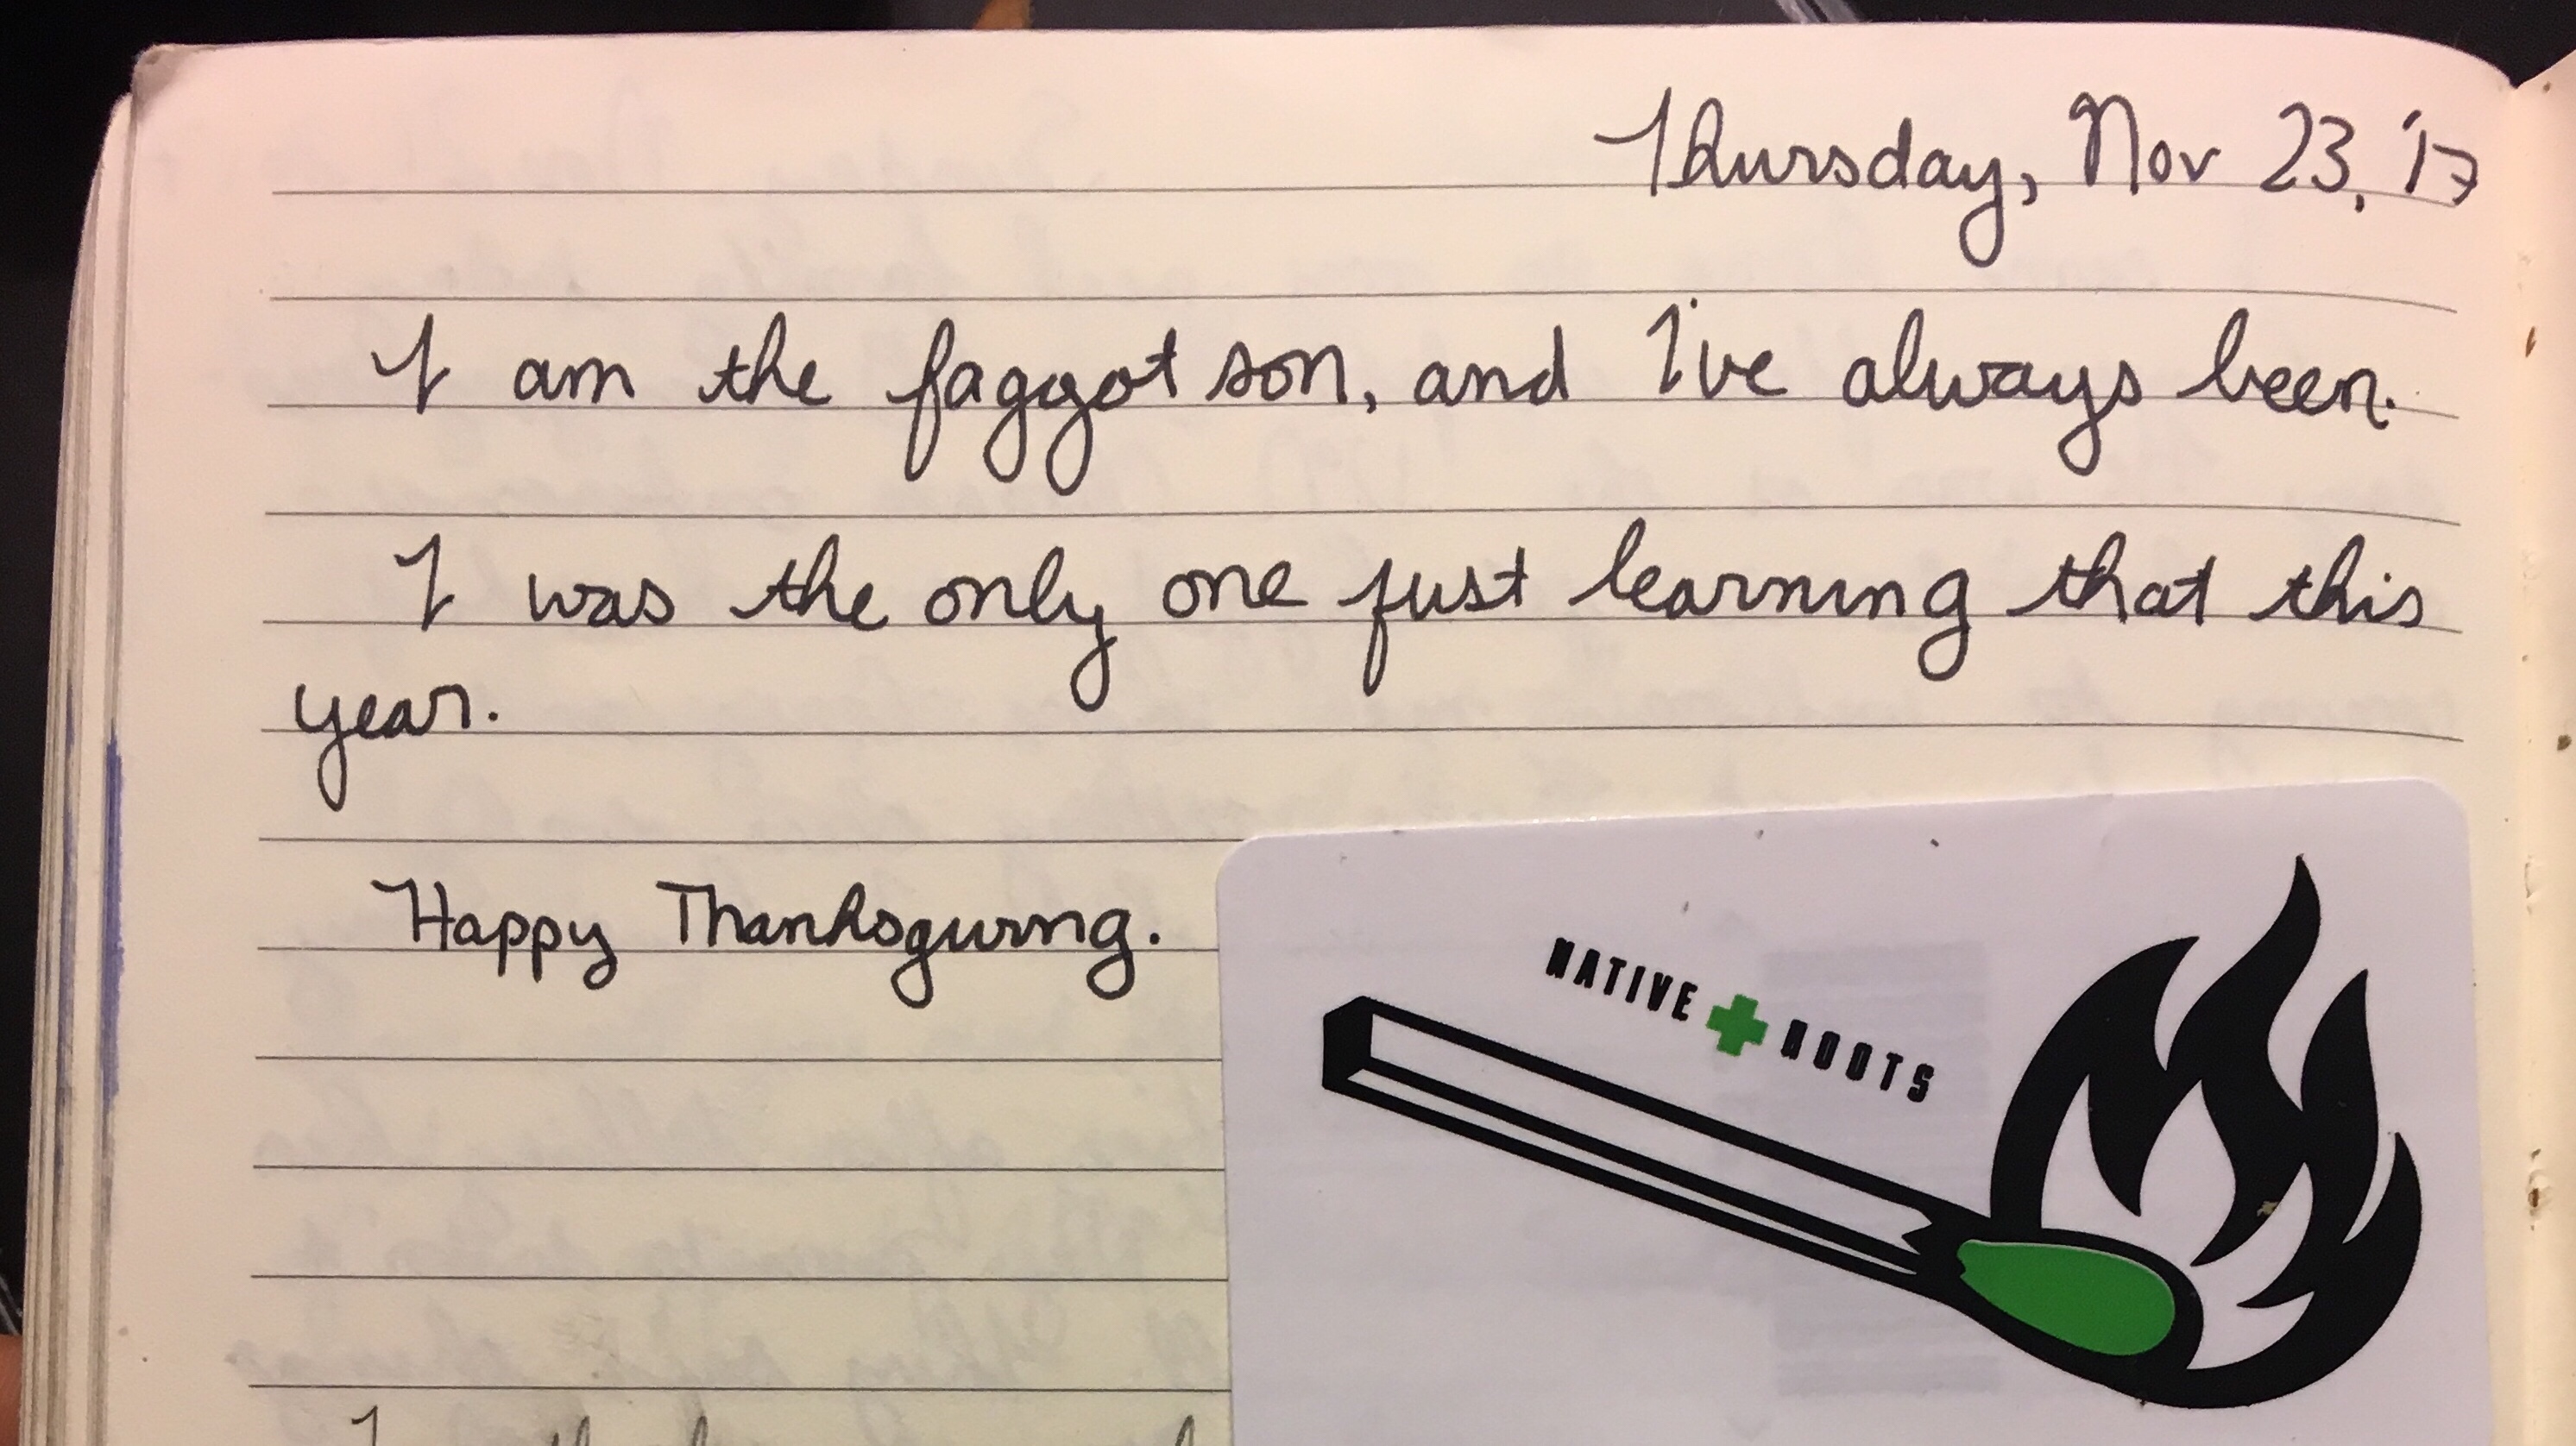 Thursday, Nov 23, '17
I am the faggot son, and I've always been.
I was the only one just learning that this
year.
Happy Thanksgiving.
NATIVE ROOTS
I